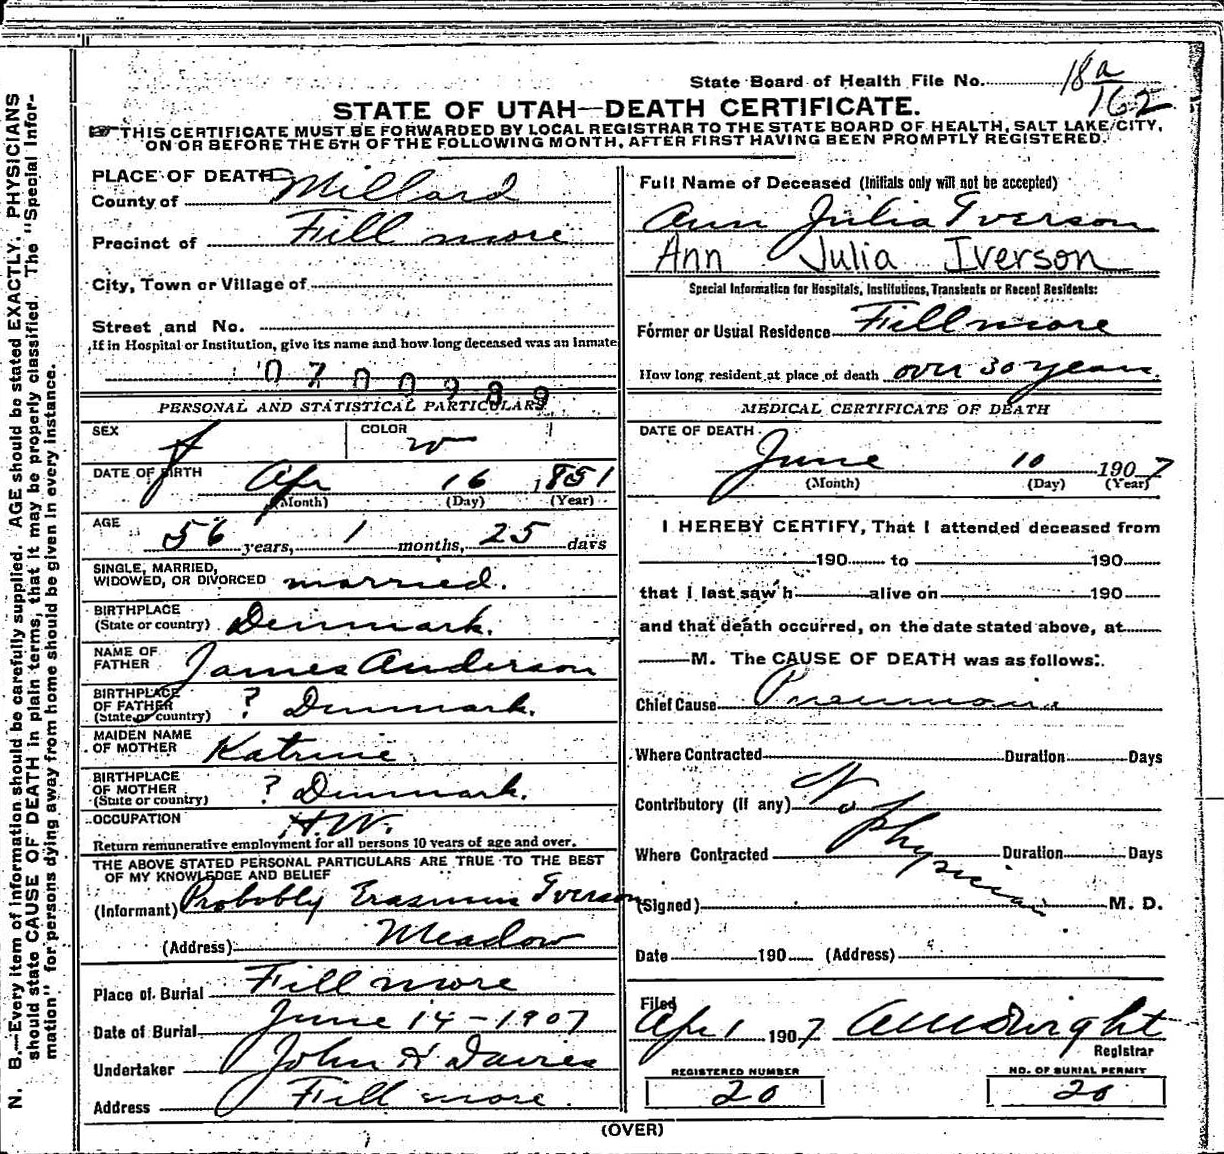 State Board of Health File No. 18a
162
STATE OF UTAH—DEATH CERTIFICATE.
☞THIS CERTIFICATE MUST BE FORWARDED BY LOCAL REGISTRAR TO THE STATE BOARD OF HEALTH, SALT LAKE CITY,
ON OR BEFORE THE 5TH OF THE FOLLOWING MONTH, AFTER FIRST HAVING BEEN PROMPTLY REGISTERED.
N. B.—Every item of information should be carefully supplied. AGE should be stated EXACTLY. PHYSICIANS
should state CAUSE OF DEATH in plain terms, that it may be properly classified. The "Special Infor-
mation" for persons dying away from home should be given in every instance.
PLACE OF DEATH
County of Millard
Precinct of Fillmore
City, Town or Village of
Street and No.
If in Hospital or Institution, give its name and how long deceased was an Inmate
0700989
PERSONAL AND STATISTICAL PARTICULARS
SEX f COLOR w
DATE OF BIRTH Apr 16 1851
(Month) (Day) (Year)
AGE 56 years, 1 months, 25 days
SINGLE, MARRIED,
WIDOWED, OR DIVORCED married.
BIRTHPLACE
(State or country) Denmark.
NAME OF
FATHER James Anderson
BIRTHPLACE
OF FATHER
(State or country) ? Denmark.
MAIDEN NAME
OF MOTHER Katrine
BIRTHPLACE
OF MOTHER
(State or country) ? Denmark.
OCCUPATION H.W.
Return remunerative employment for all persons 10 years of age and over.
THE ABOVE STATED PERSONAL PARTICULARS ARE TRUE TO THE BEST
OF MY KNOWLEDGE AND BELIEF
(Informant) Probobly Erasmus Iverson
(Address) Meadow
Place of Burial Fillmore
Date of Burial June 14-1907
Undertaker John H Davies
Address Fillmore.
Full Name of Deceased (Initials only will not be accepted)
Ann Julia Iverson
Ann Julia Iverson
Special Information for Hospitals, Institutions, Transients or Recent Residents:
Former or Usual Residence Fillmore
How long resident at place of death over 30 years.
MEDICAL CERTIFICATE OF DEATH
DATE OF DEATH
June 10 1907
(Month) (Day) (Year)
I HEREBY CERTIFY, That I attended deceased from
190 to 190
that I last saw h alive on 190
and that death occurred, on the date stated above, at
M. The CAUSE OF DEATH was as follows:
Chief Cause Pneumonia
Where Contracted Duration Days
Contributory (If any) No
Where Contracted Physician Duration Days
(Signed) M. D.
Date 190 (Address)
Filed
Apr 1 1907 Wright
Registrar
REGISTERED NUMBER
20
NO. OF BURIAL PERMIT
20
(OVER)